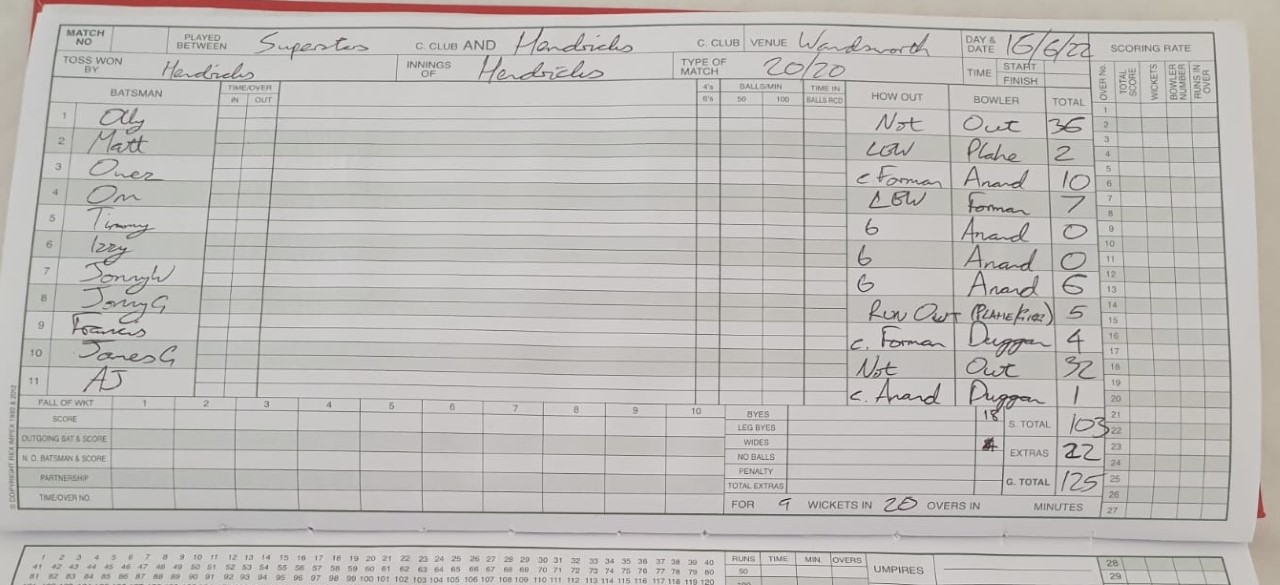 MATCH NO PLAYED BETWEEN Superstars C. CLUB AND Hendricks C. CLUB VENUE Wandsworth DAY & DATE 16/6/22 SCORING RATE
TOSS WON BY Hendricks INNINGS OF Hendricks TYPE OF MATCH 20/20 TIME START FINISH
BATSMAN TIME/OVER IN OUT 4's 6's BALLS/MIN 50 100 TIME IN BALLS RCD HOW OUT BOWLER TOTAL OVER No. TOTAL SCORE WICKETS BOWLER NUMBER RUNS IN OVER
1 Olly Not Out 36
2 Matt LBW Plahe 2
3 Onez c Forman Anand 10
4 Om LBW Forman 7
5 Timmy b Anand 0
6 Izzy b Anand 0
7 JonnyW b Anand 6
8 JonnyG Run Out 5
9 Francis c. Forman Duggan 4
10 JamesG Not Out 32
11 AJ c. Anand Duggan 1
1
2
3
4
5
6
7
8
9
10
11
12
13
14
15
16
17
18
19
20
21
22
23
24
25
26
27
FALL OF WKT 1 2 3 4 5 6 7 8 9 10
SCORE
OUTGOING BAT & SCORE
N. O. BATSMAN & SCORE
PARTNERSHIP
TIME/OVER NO.
BYES 18
LEG BYES
WIDES 4
NO BALLS
PENALTY
TOTAL EXTRAS
S. TOTAL 103
EXTRAS 22
G. TOTAL 125
FOR 9 WICKETS IN 20 OVERS IN MINUTES
© COPYRIGHT REX IMPEX 1992 & 2012
1 2 3 4 5 6 7 8 9 10 11 12 13 14 15 16 17 18 19 20 21 22 23 24 25 26 27 28 29 30 31 32 33 34 35 36 37 38 39 40
41 42 43 44 45 46 47 48 49 50 51 52 53 54 55 56 57 58 59 60 61 62 63 64 65 66 67 68 69 70 71 72 73 74 75 76 77 78 79 80
81 82 83 84 85 86 87 88 89 90 91 92 93 94 95 96 97 98 99 100 101 102 103 104 105 106 107 108 109 110 111 112 113 114 115 116 117 118 119 120
RUNS TIME MIN. OVERS UMPIRES
50
28
29